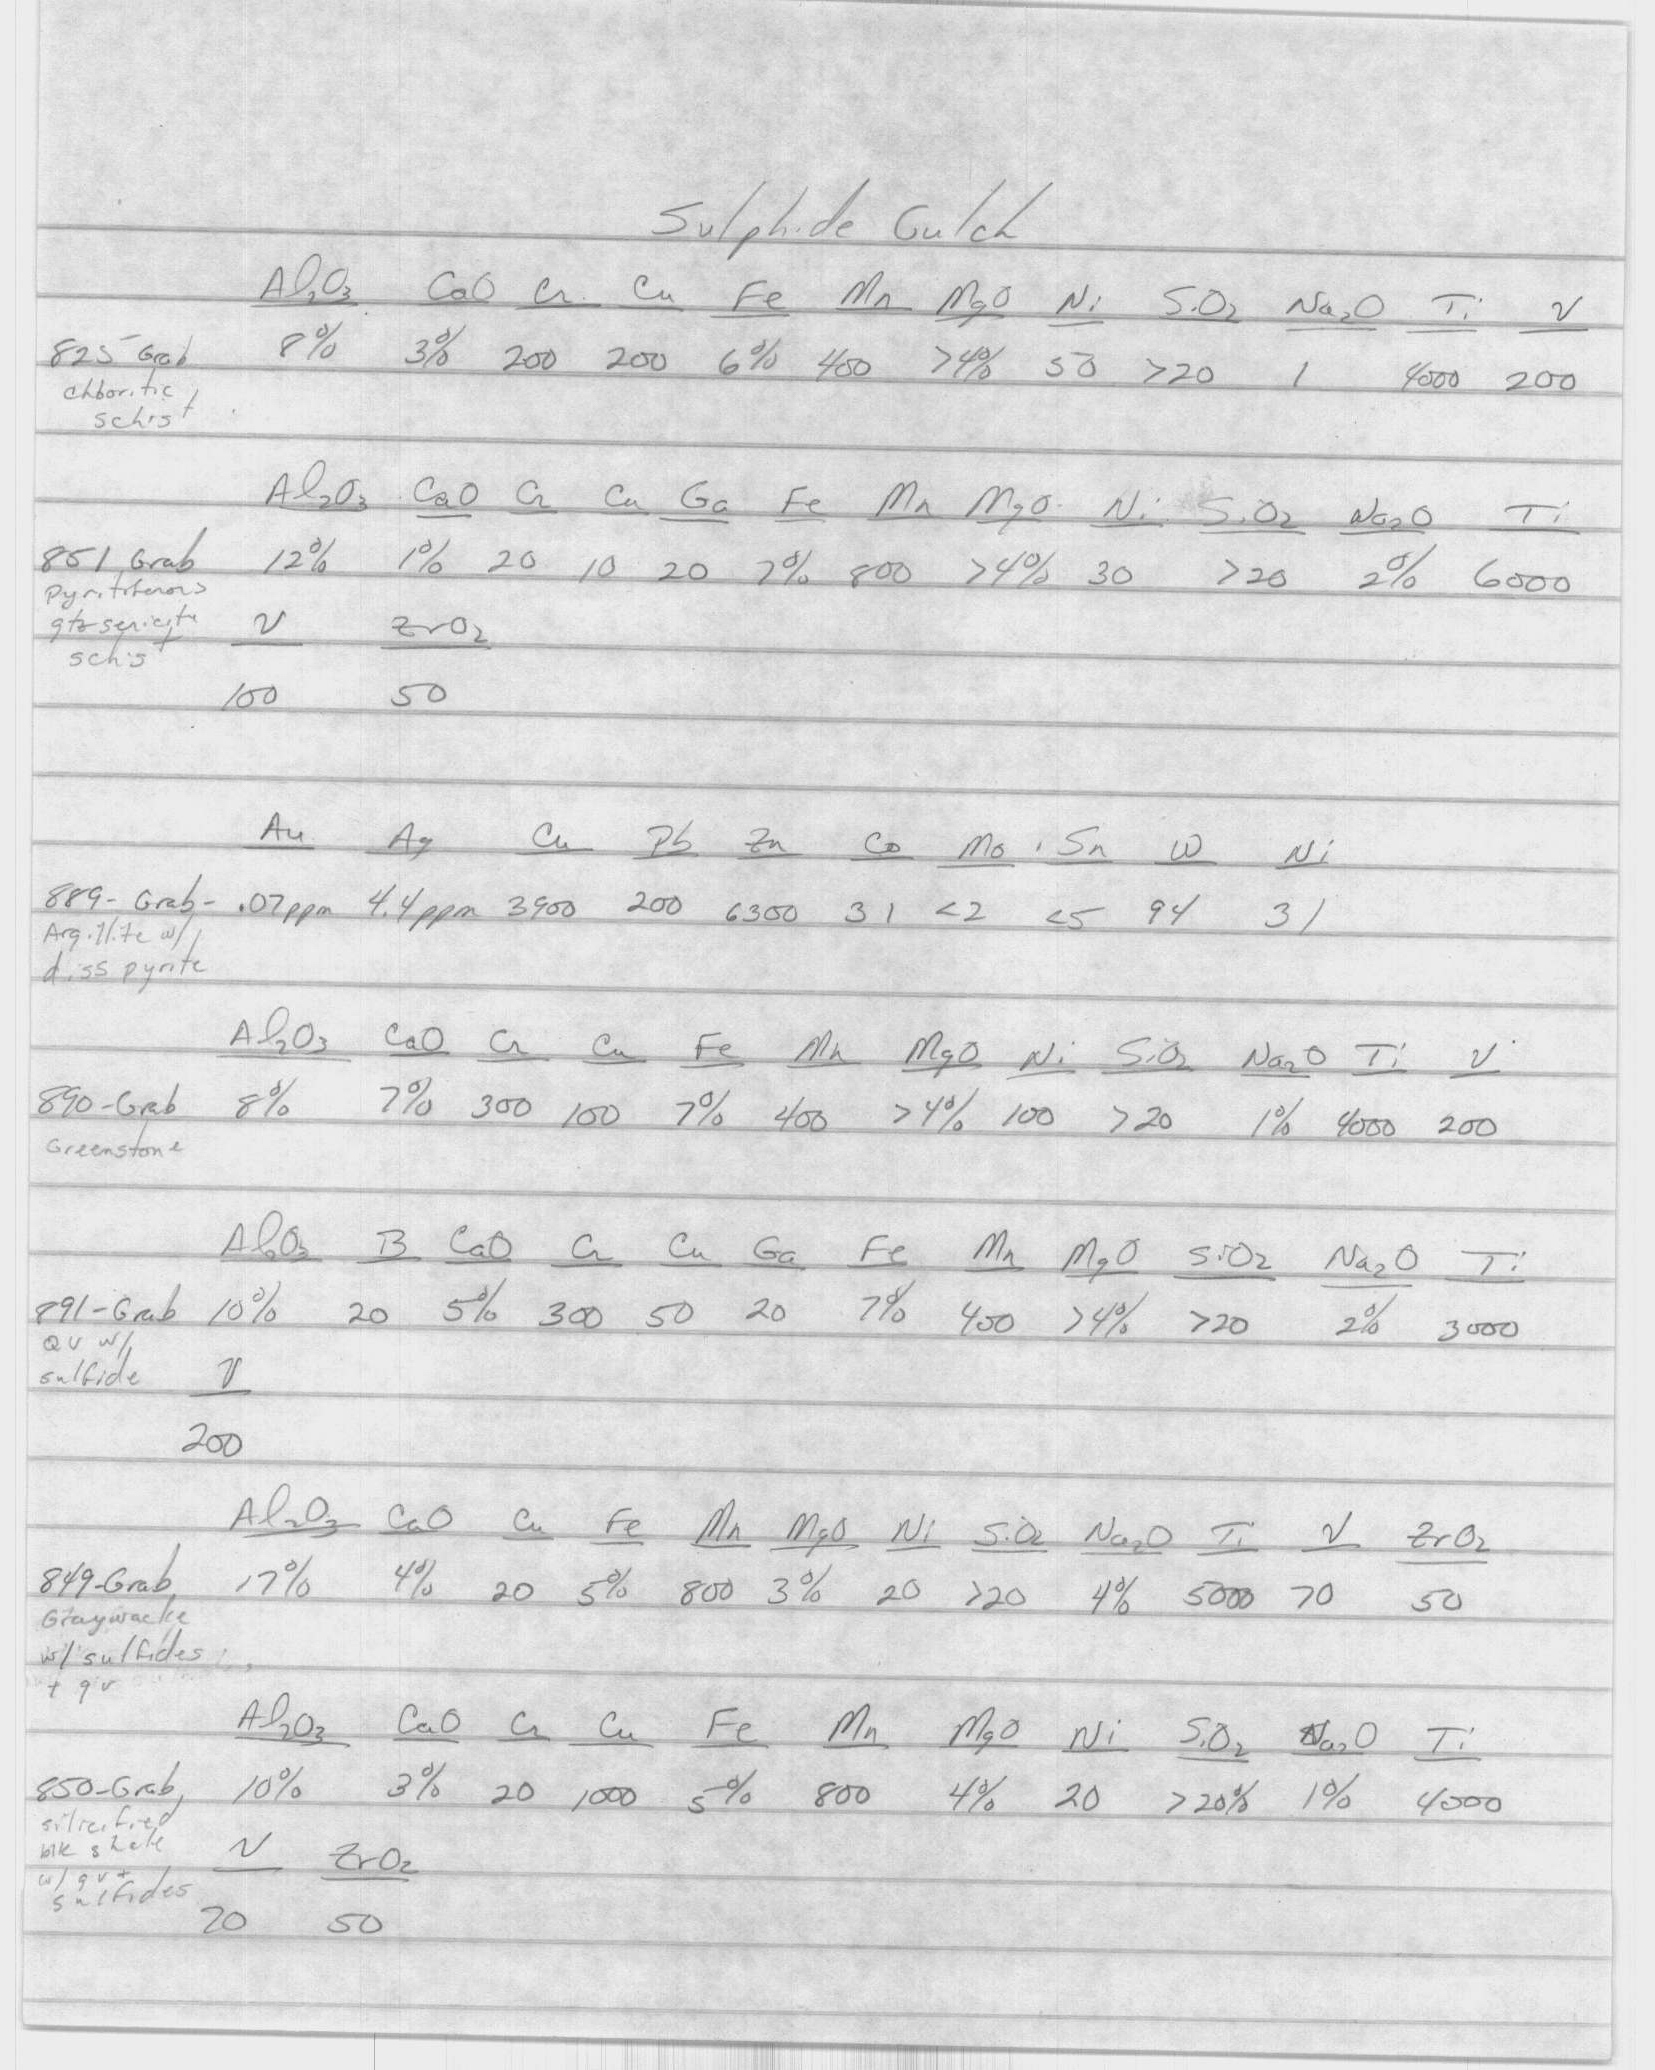 Sulphide Gulch
Al2O3 CaO Cr Cu Fe Mn MgO Ni SiO2 Na2O Ti V
825 Grab 8% 3% 200 200 6% 400 >4% 50 >20 1 4000 200
chloritic
schist
Al2O3 CaO Cr Cu Ga Fe Mn MgO Ni SiO2 Na2O Ti
851 Grab 12% 1% 20 10 20 7% 800 >4% 30 >20 2% 6000
pyritiferous
qtz-sericite V ZrO2
schist
100 50
Au Ag Cu Pb Zn Co Mo Sn W Ni
889- Grab- .07ppm 4.4ppm 3900 200 6300 31 <2 <5 94 31
Argillite w/
diss pyrite
Al2O3 CaO Cr Cu Fe Mn MgO Ni SiO2 Na2O Ti V
890-Grab 8% 7% 300 100 7% 400 >4% 100 >20 1% 4000 200
Greenstone
Al2O3 B CaO Cr Cu Ga Fe Mn MgO SiO2 Na2O Ti
891-Grab 10% 20 5% 300 50 20 7% 400 >4% >20 2% 3000
QV w/
sulfide V
200
Al2O3 CaO Cu Fe Mn MgO Ni SiO2 Na2O Ti V ZrO2
849-Grab 17% 4% 20 5% 800 3% 20 >20 4% 5000 70 50
Graywacke
w/ sulfides
+ qv
Al2O3 CaO Cr Cu Fe Mn MgO Ni SiO2 Na2O Ti
850-Grab 10% 3% 20 1000 5% 800 4% 20 >20% 1% 4000
silicified
blk shale V ZrO2
w/ qv +
sulfides
70 50